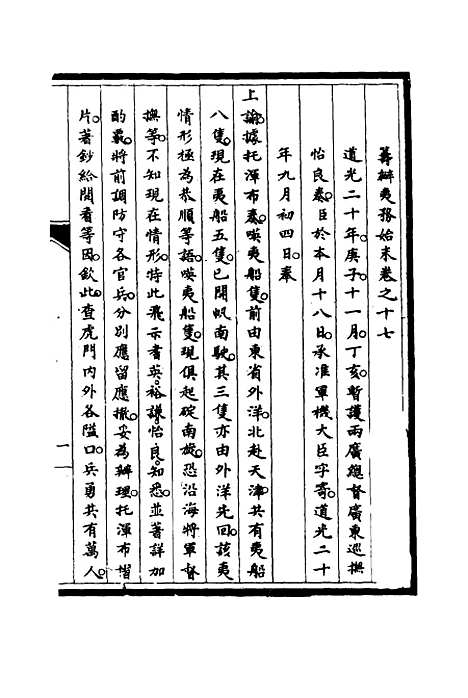 籌辦夷務始末卷之十七
道光二十年。庚子。十一月。丁亥。暫護兩廣總督廣東巡撫
怡良奏。臣於本月十八日。承准軍機大臣字寄。道光二十
年九月初四日。奉
上諭。據托渾布奏。嘆夷船隻。前由東省外洋。北赴天津。共有夷船
八隻。現在夷船五隻。已開帆南駛。其三隻亦由外洋先回。該夷
情形極為恭順等語。嘆夷船隻。現俱起碇南旋。恐沿海將軍督
撫等。不知現在情形。特此飛示耆英。裕謙。怡良。知悉。並著詳加
酌覈。將前調防守各官兵。分別應留應撤。妥為辦理。托渾布摺
片。著鈔給閱看等因。欽此。查虎門內外各隘口。兵勇共有萬人。
一